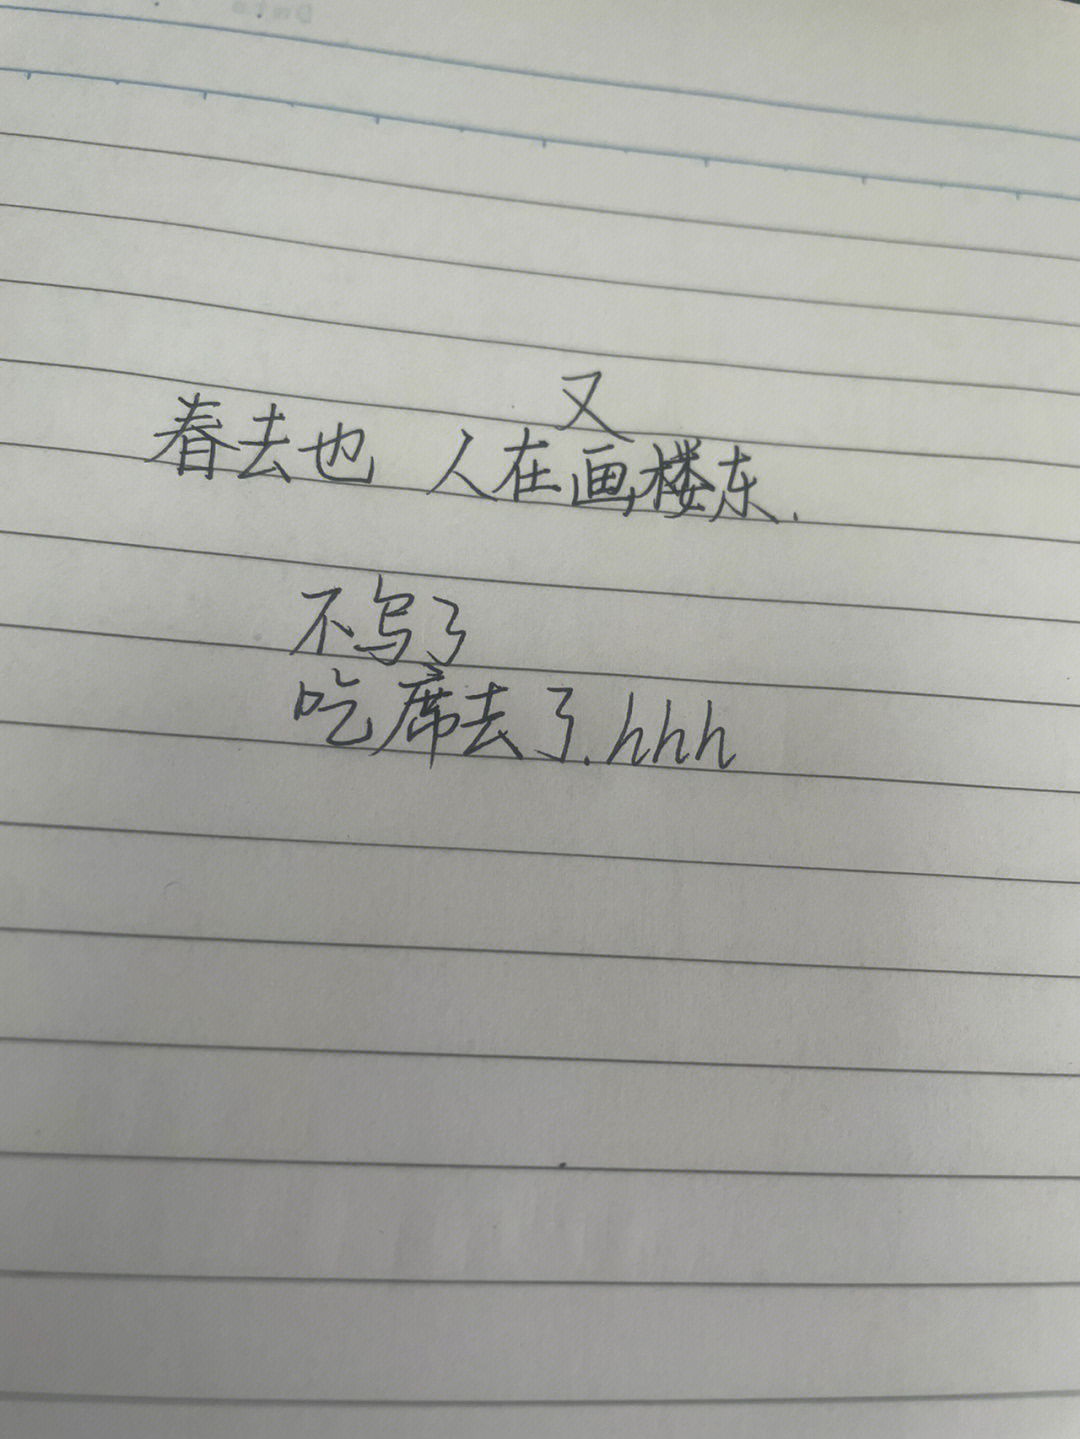 又
春去也 人在画楼东.
不写了
吃席去了.hhh